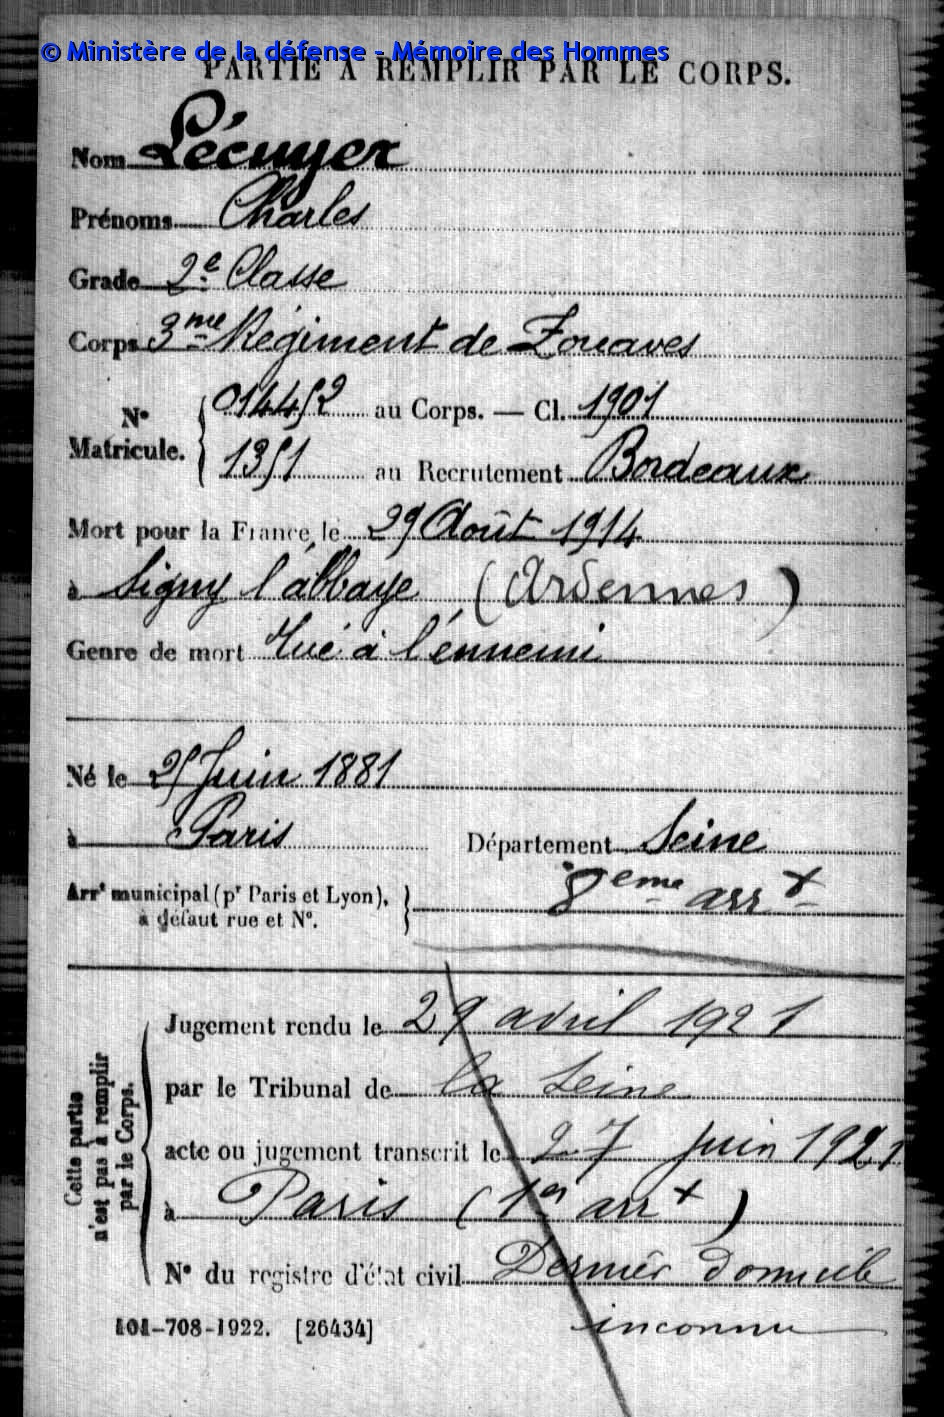 © Ministère de la défense - Mémoire des Hommes
PARTIE A REMPLIR PAR LE CORPS.
Nom Lécuyer
Prénoms Charles
Grade 2e Classe
Corps 3me Régiment de Zouaves
No Matricule. { 014452 au Corps. — Cl. 1901
1351 au Recrutement Bordeaux
Mort pour la France, le 29 Août 1914
à Signy l'abbaye (Ardennes)
Genre de mort Tué à l'ennemi
Né le 25 Juin 1881
à Paris Département Seine
Arrt municipal (pr Paris et Lyon), à défaut rue et No. } 8eme arrt
Cette partie n'est pas à remplir par le Corps.
Jugement rendu le 29 avril 1921
par le Tribunal de la Seine
acte ou jugement transcrit le 27 juin 1921
à Paris (1er arrt)
No du registre d'état civil Dernier domicile
inconnu
101-708-1922. [26434]